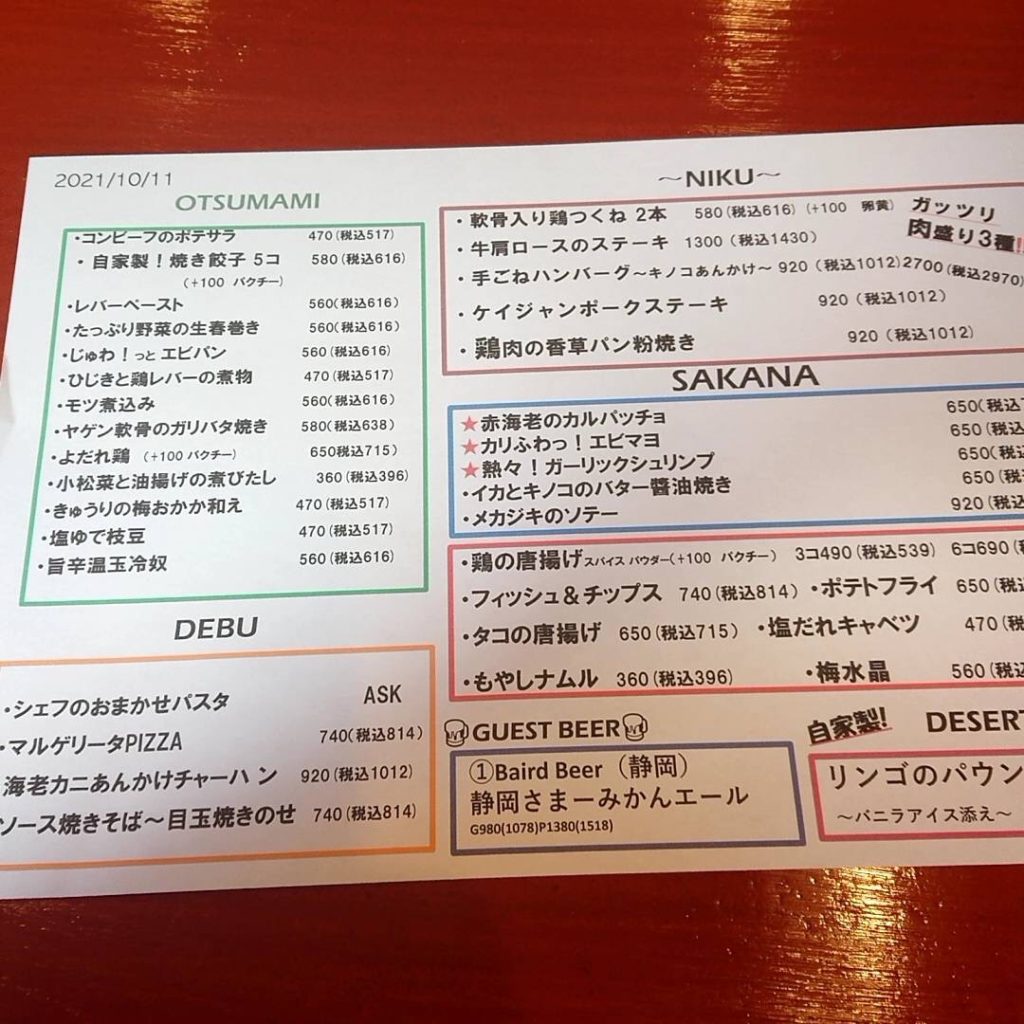 2021/10/11
OTSUMAMI
・コンビーフのポテサラ 470(税込517)
・自家製！焼き餃子 5コ 580(税込616)
(+100 パクチー)
・レバーペースト 560(税込616)
・たっぷり野菜の生春巻き 560(税込616)
・じゅわ！っと エビパン 560(税込616)
・ひじきと鶏レバーの煮物 470(税込517)
・モツ煮込み 560(税込616)
・ヤゲン軟骨のガリバタ焼き 580(税込638)
・よだれ鶏 (+100 パクチー) 650税込715)
・小松菜と油揚げの煮びたし 360(税込396)
・きゅうりの梅おかか和え 470(税込517)
・塩ゆで枝豆 470(税込517)
・旨辛温玉冷奴 560(税込616)
DEBU
・シェフのおまかせパスタ ASK
・マルゲリータPIZZA 740(税込814)
海老カニあんかけチャーハン 920(税込1012)
ソース焼きそば〜目玉焼きのせ 740(税込814)
〜NIKU〜
・軟骨入り鶏つくね 2本 580(税込616) (+100 卵黄)
・牛肩ロースのステーキ 1300 (税込1430)
・手ごねハンバーグ〜キノコあんかけ〜 920 (税込1012)
・ケイジャンポークステーキ 920 (税込1012)
・鶏肉の香草パン粉焼き 920 (税込1012)
ガッツリ
肉盛り3種!!
2700(税込2970)
SAKANA
★赤海老のカルパッチョ 650(税込
★カリふわっ！エビマヨ 650(税込
★熱々！ガーリックシュリンプ 650(税込
・イカとキノコのバター醤油焼き 650(税
・メカジキのソテー 920(税込
・鶏の唐揚げスパイス パウダー(+100 パクチー) 3コ490(税込539) 6コ690(
・フィッシュ＆チップス 740(税込814) ・ポテトフライ 650(税
・タコの唐揚げ 650(税込715) ・塩だれキャベツ 470(税
・もやしナムル 360(税込396) ・梅水晶 560(税込
GUEST BEER
①Baird Beer（静岡）
静岡さまーみかんエール
G980(1078)P1380(1518)
自家製! DESERT
リンゴのパウン
〜バニラアイス添え〜